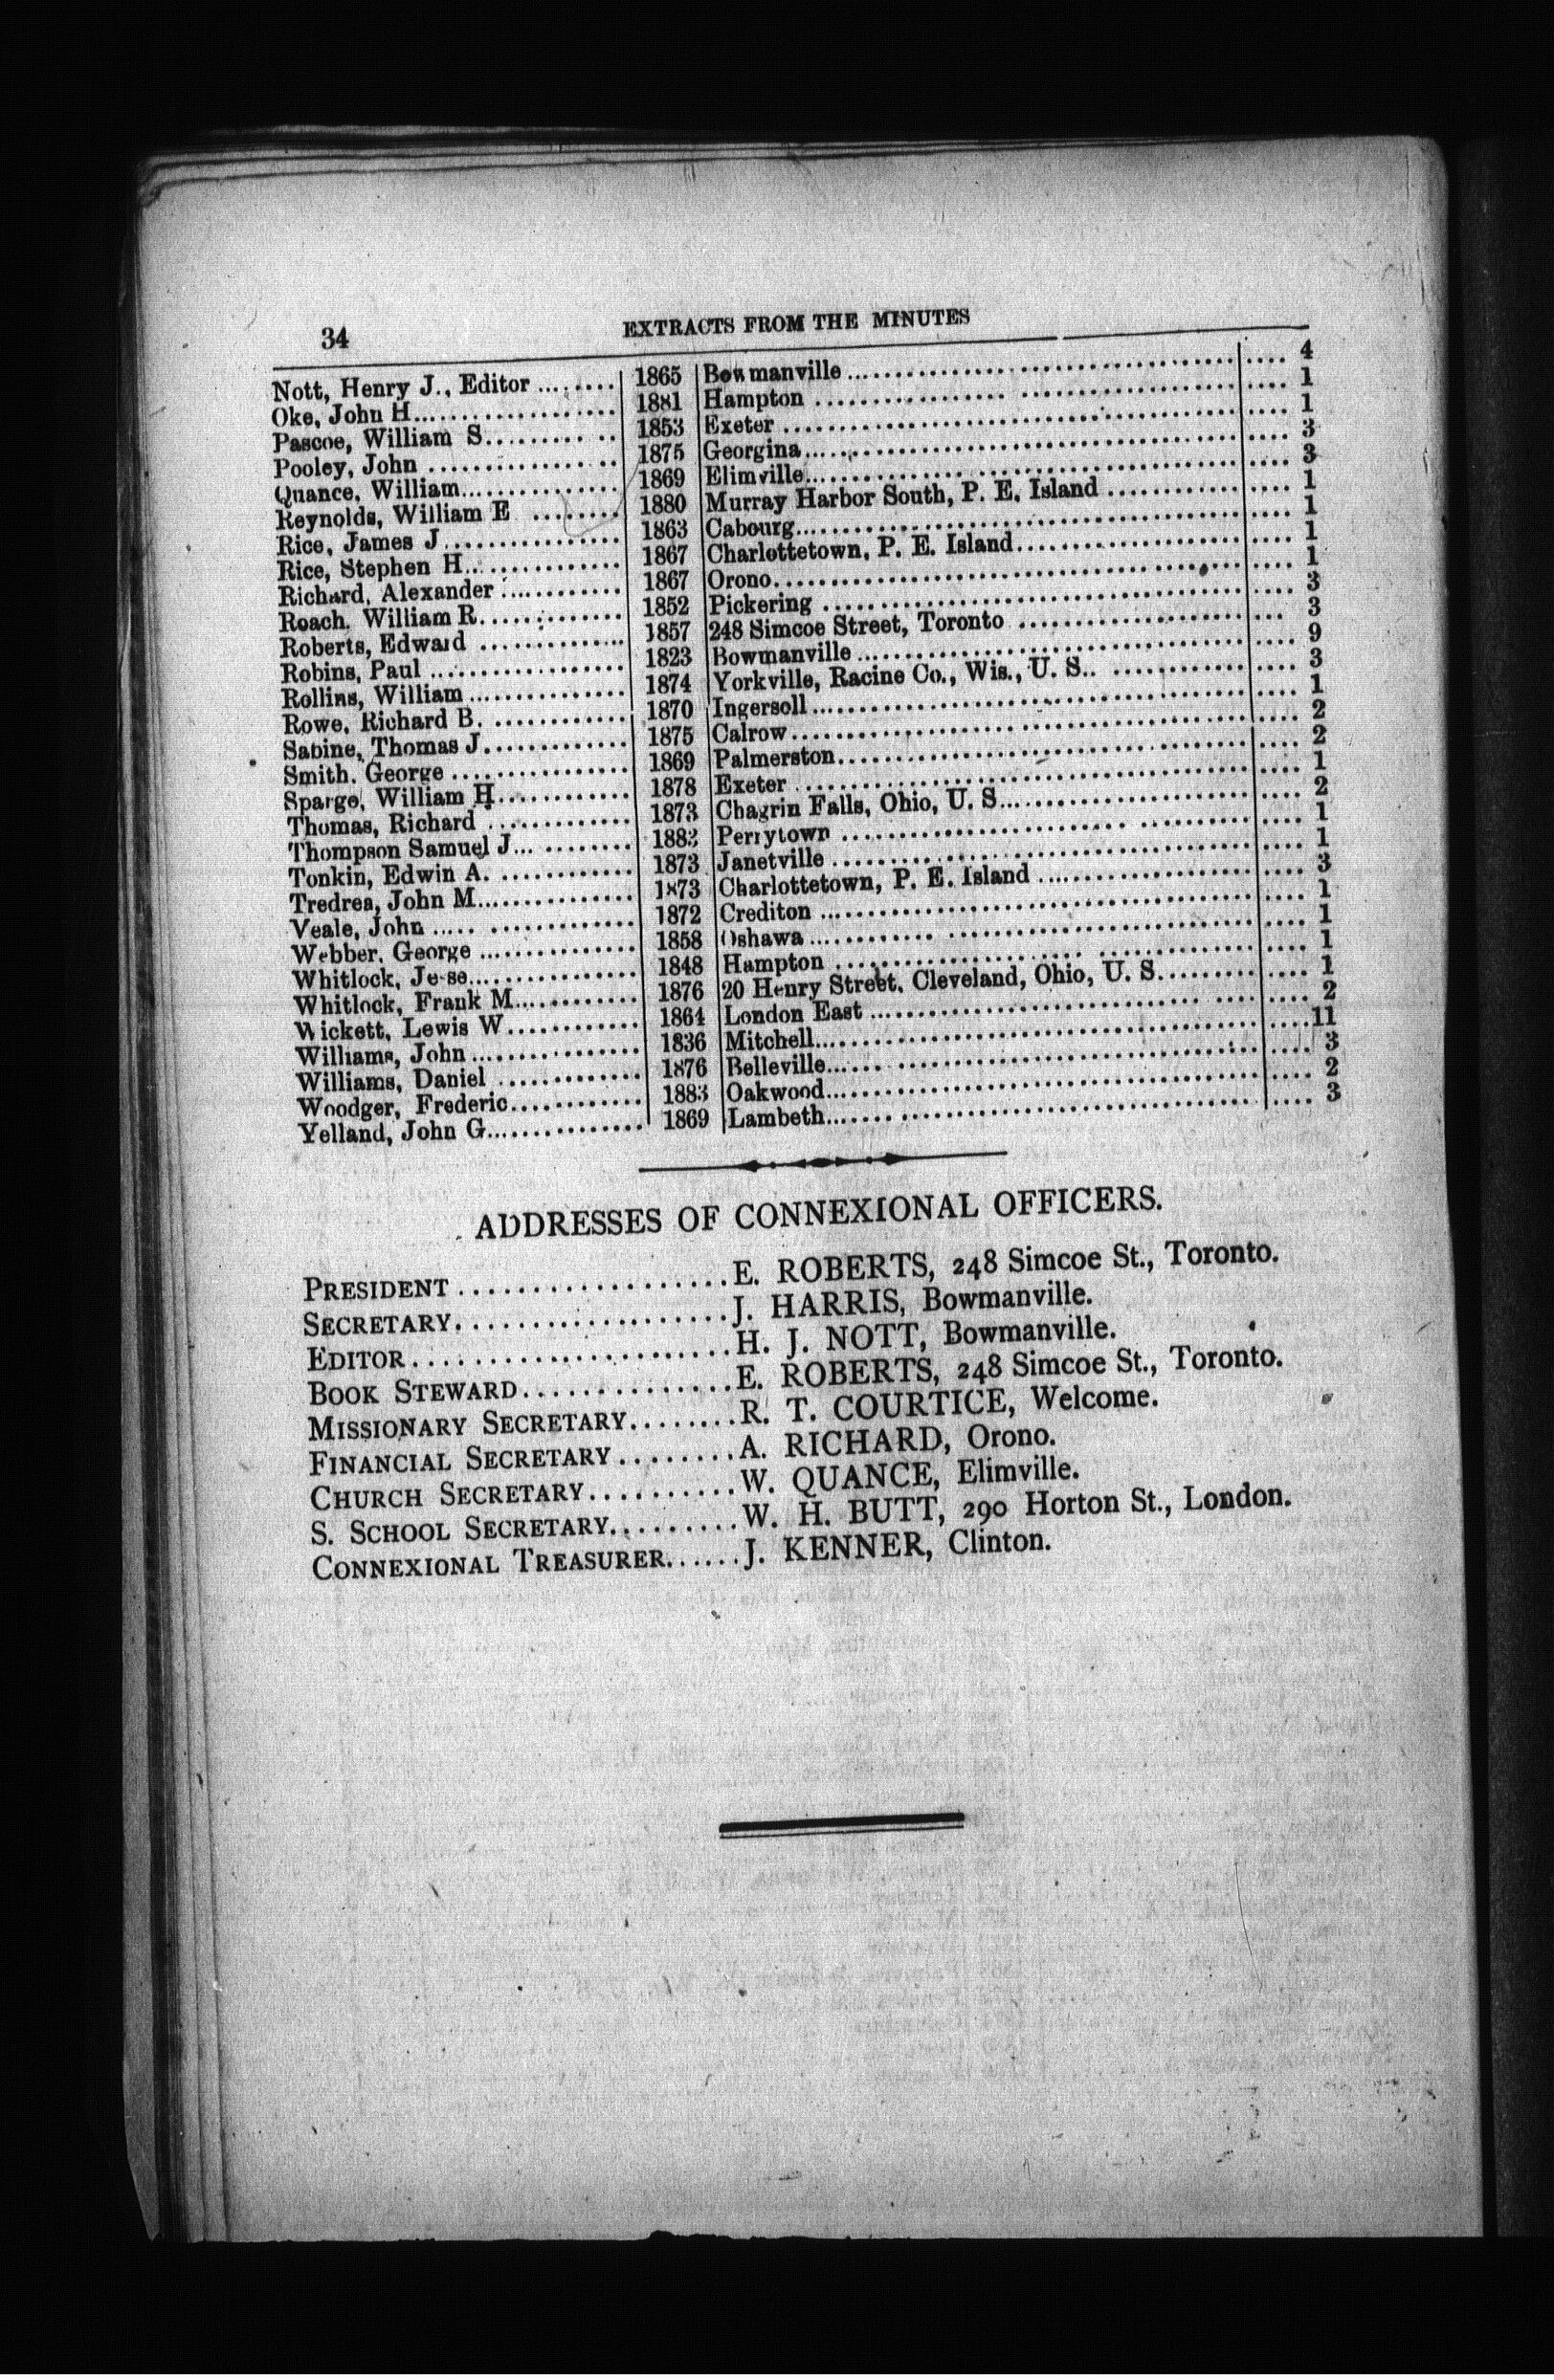 34 EXTRACTS FROM THE MINUTES
Nott, Henry J., Editor ......... 1865 Bowmanville .... 4
Oke, John H .... 1881 Hampton .... 1
Pascoe, William S .... 1853 Exeter .... 1
Pooley, John .... 1875 Georgina .... 3
Quance, William .... 1869 Elimville .... 3
Reynolds, William E .... 1880 Murray Harbor South, P. E. Island .... 1
Rice, James J .... 1863 Cabourg .... 1
Rice, Stephen H .... 1867 Charlottetown, P. E. Island .... 1
Richard, Alexander .... 1867 Orono .... 1
Roach, William R .... 1852 Pickering .... 3
Roberts, Edward .... 1857 248 Simcoe Street, Toronto .... 3
Robins, Paul .... 1823 Bowmanville .... 9
Rollins, William .... 1874 Yorkville, Racine Co., Wis., U. S. .... 3
Rowe, Richard B. .... 1870 Ingersoll .... 1
Sabine, Thomas J. .... 1875 Calrow .... 2
Smith, George .... 1869 Palmerston .... 2
Spargo, William H .... 1878 Exeter .... 1
Thomas, Richard .... 1873 Chagrin Falls, Ohio, U. S .... 2
Thompson Samuel J .... 1883 Perrytown .... 1
Tonkin, Edwin A. .... 1873 Janetville .... 1
Tredrea, John M .... 1873 Charlottetown, P. E. Island .... 3
Veale, John .... 1872 Crediton .... 1
Webber, George .... 1858 Oshawa .... 1
Whitlock, Jesse .... 1848 Hampton .... 1
Whitlock, Frank M .... 1876 20 Henry Street, Cleveland, Ohio, U. S. .... 1
Wickett, Lewis W .... 1864 London East .... 2
Williams, John .... 1836 Mitchell .... 11
Williams, Daniel .... 1876 Belleville .... 3
Woodger, Frederic .... 1883 Oakwood .... 2
Yelland, John G .... 1869 Lambeth .... 3
ADDRESSES OF CONNEXIONAL OFFICERS.
PRESIDENT .... E. ROBERTS, 248 Simcoe St., Toronto.
SECRETARY .... J. HARRIS, Bowmanville.
EDITOR .... H. J. NOTT, Bowmanville.
BOOK STEWARD .... E. ROBERTS, 248 Simcoe St., Toronto.
MISSIONARY SECRETARY .... R. T. COURTICE, Welcome.
FINANCIAL SECRETARY .... A. RICHARD, Orono.
CHURCH SECRETARY .... W. QUANCE, Elimville.
S. SCHOOL SECRETARY .... W. H. BUTT, 290 Horton St., London.
CONNEXIONAL TREASURER .... J. KENNER, Clinton.